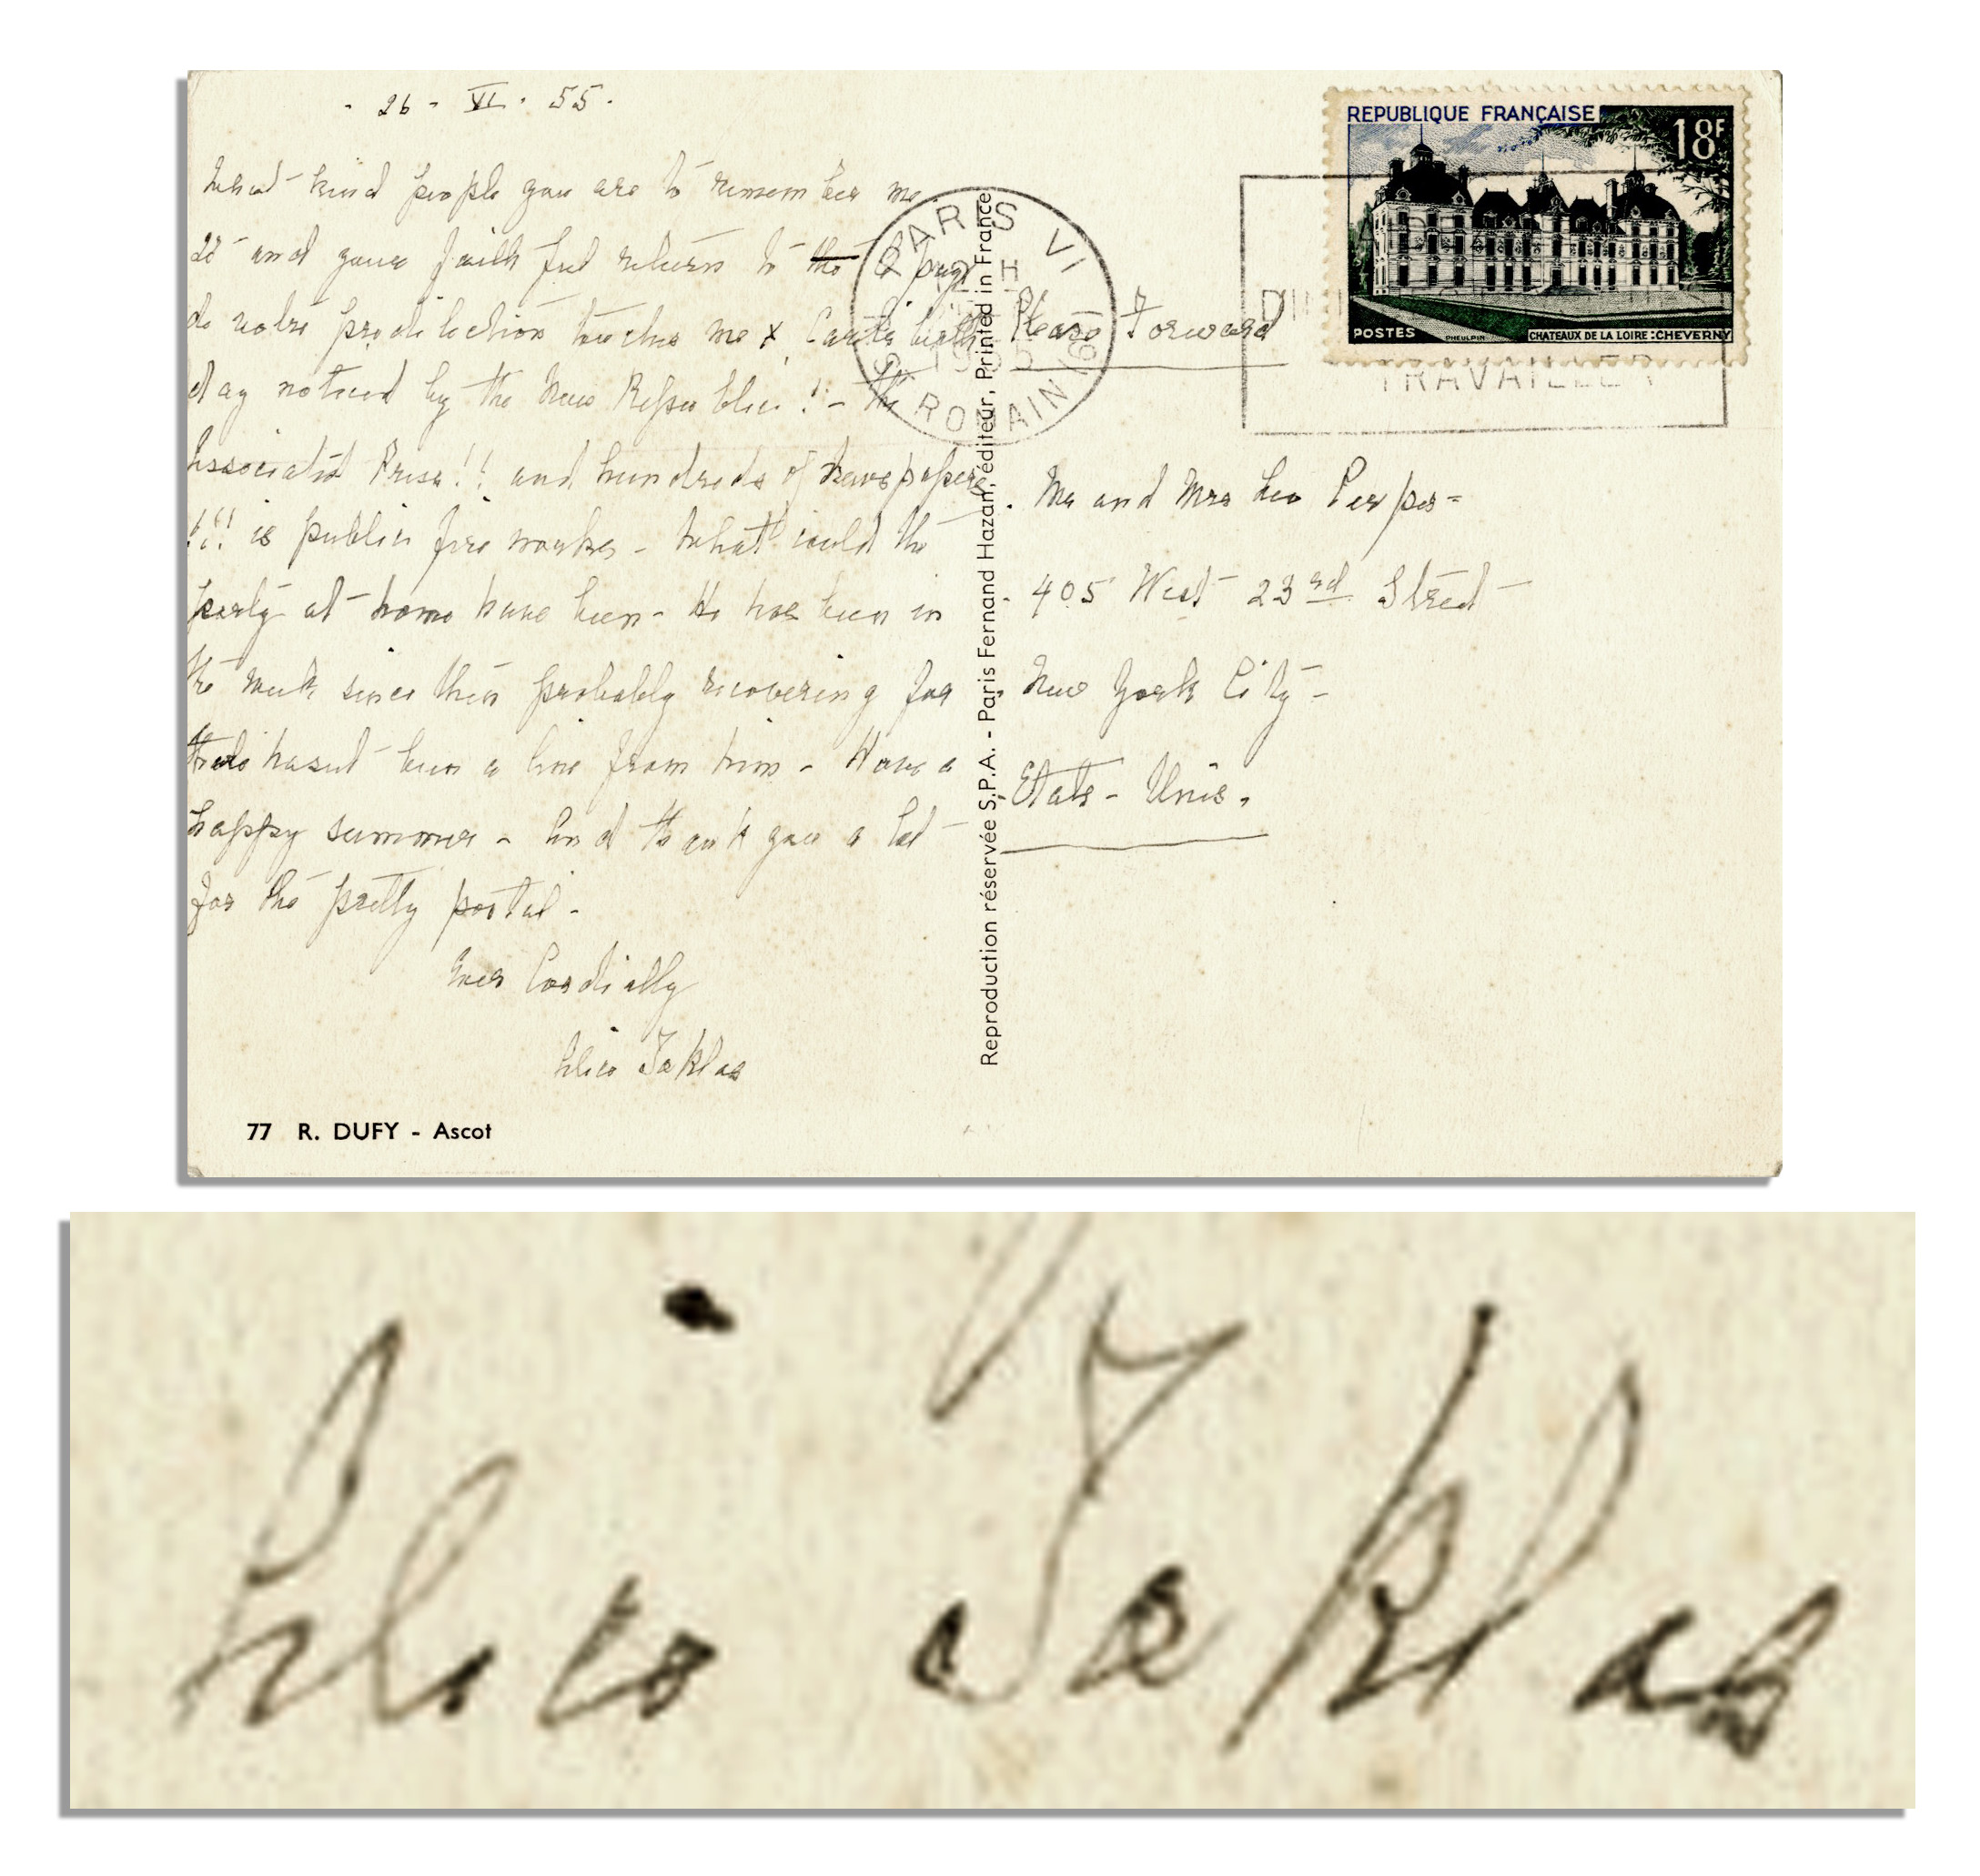 - 26 - VI. 55.
What kind people you are to remember me
and your faithful return to the pays
de votre prédilection touches me & Carl's birth
day noticed by the New Republic! - the
Associated Press!! and hundreds of newspapers
!!! is public fire works - What could the
party at home have been - He has been in
the week since then probably recovering for
there hasnt been a line from him - Have a
happy summer - And thank you a lot
for the pretty postal -
Ever Cordially
Alice Toklas
77 R. DUFY - Ascot
Reproduction réservée S.P.A. - Paris Fernand Hazan, éditeur, Printed in France
PARIS VI
12 H
1955
R. ROMAIN
REPUBLIQUE FRANÇAISE
18F
POSTES
PHEULPIN
CHATEAUX DE LA LOIRE : CHEVERNY
TRAVAILLER
Please Forward
Mr and Mrs Leo Perper -
405 West 23rd Street -
New York City -
Etats - Unis.
Alice Toklas